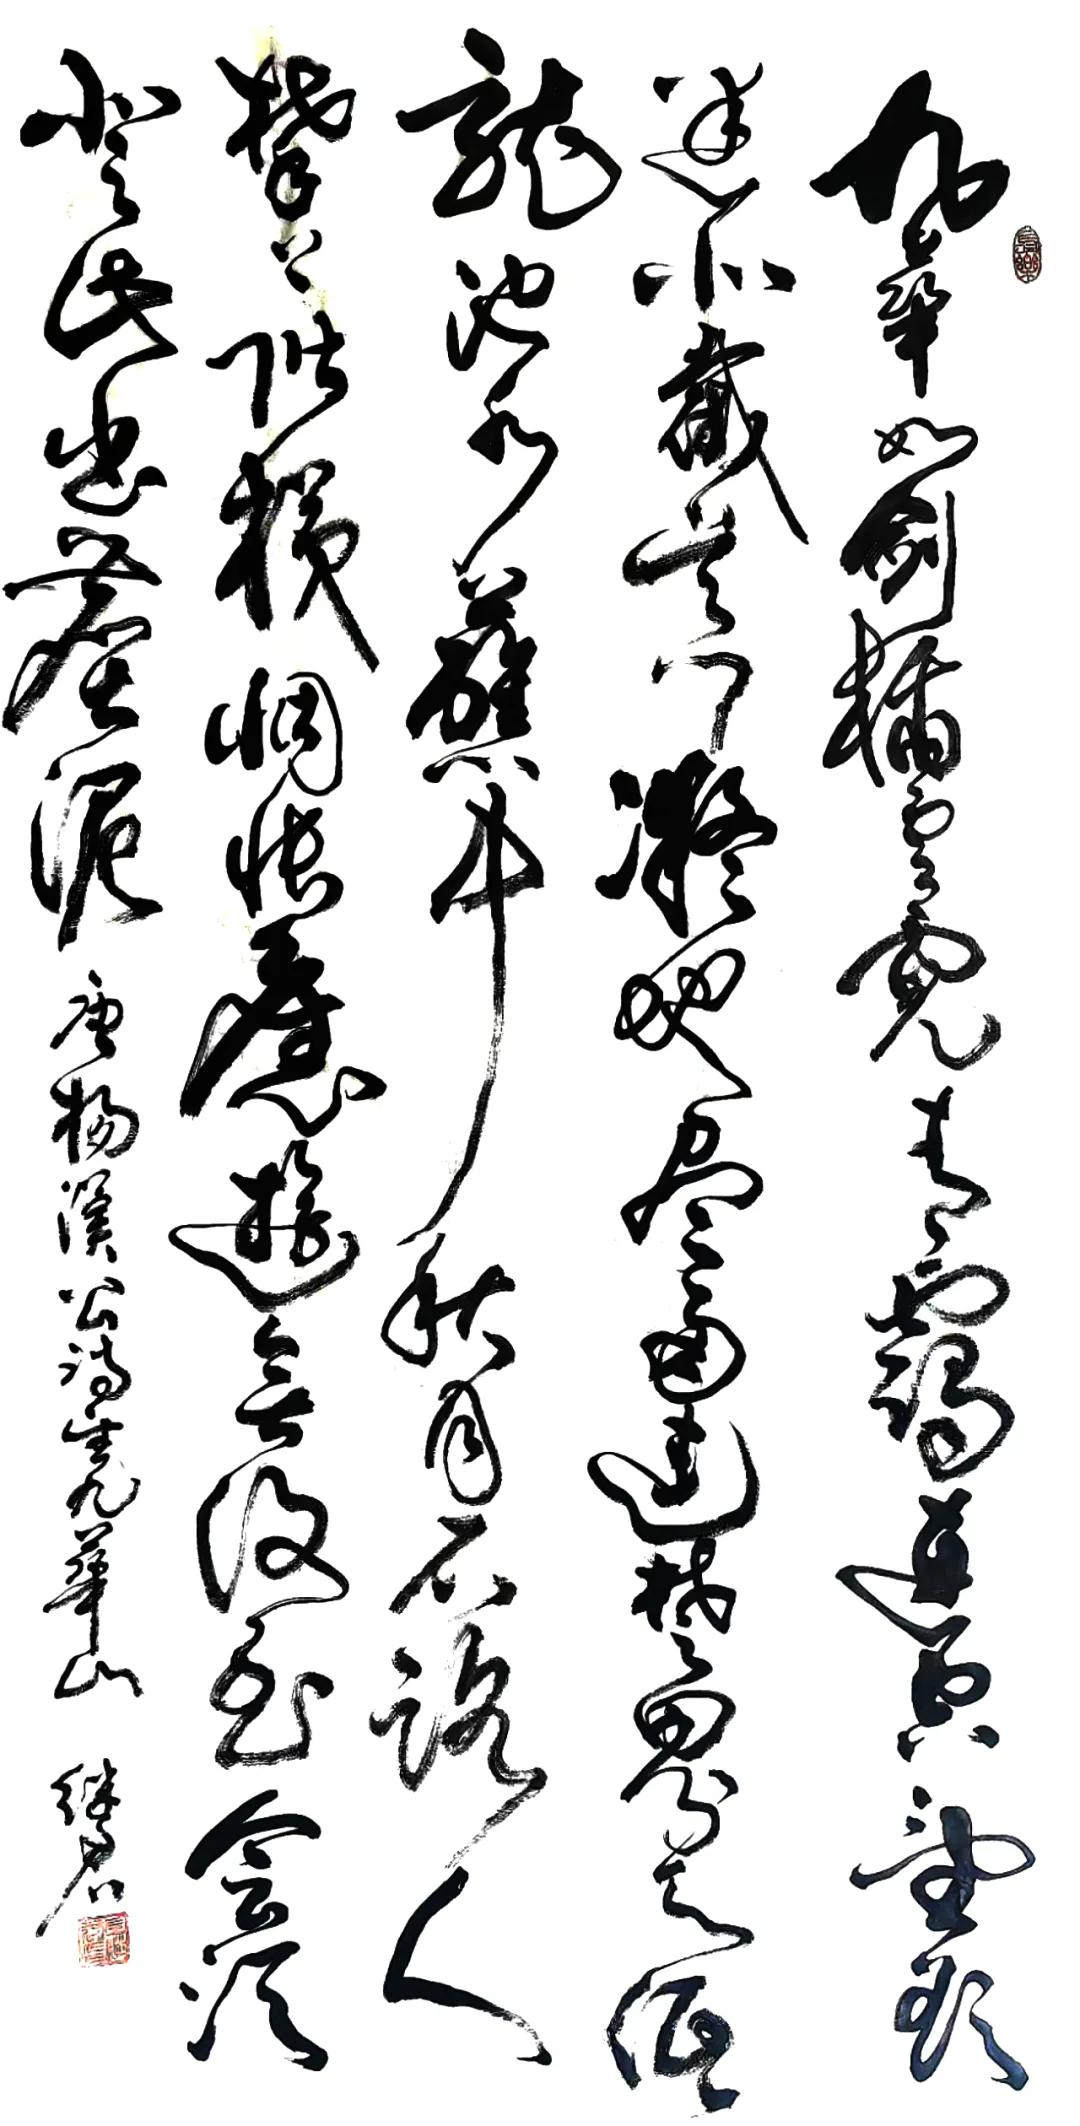 九華如劍插雲霓青靄連空望欲
迷北截吴门凝地尽南連楚界覺天低
龍池水蘸中秋月石路人
攀上階梯惆悵舊遊無復到會須
登此出塵泥 唐楊漢公詩九華山